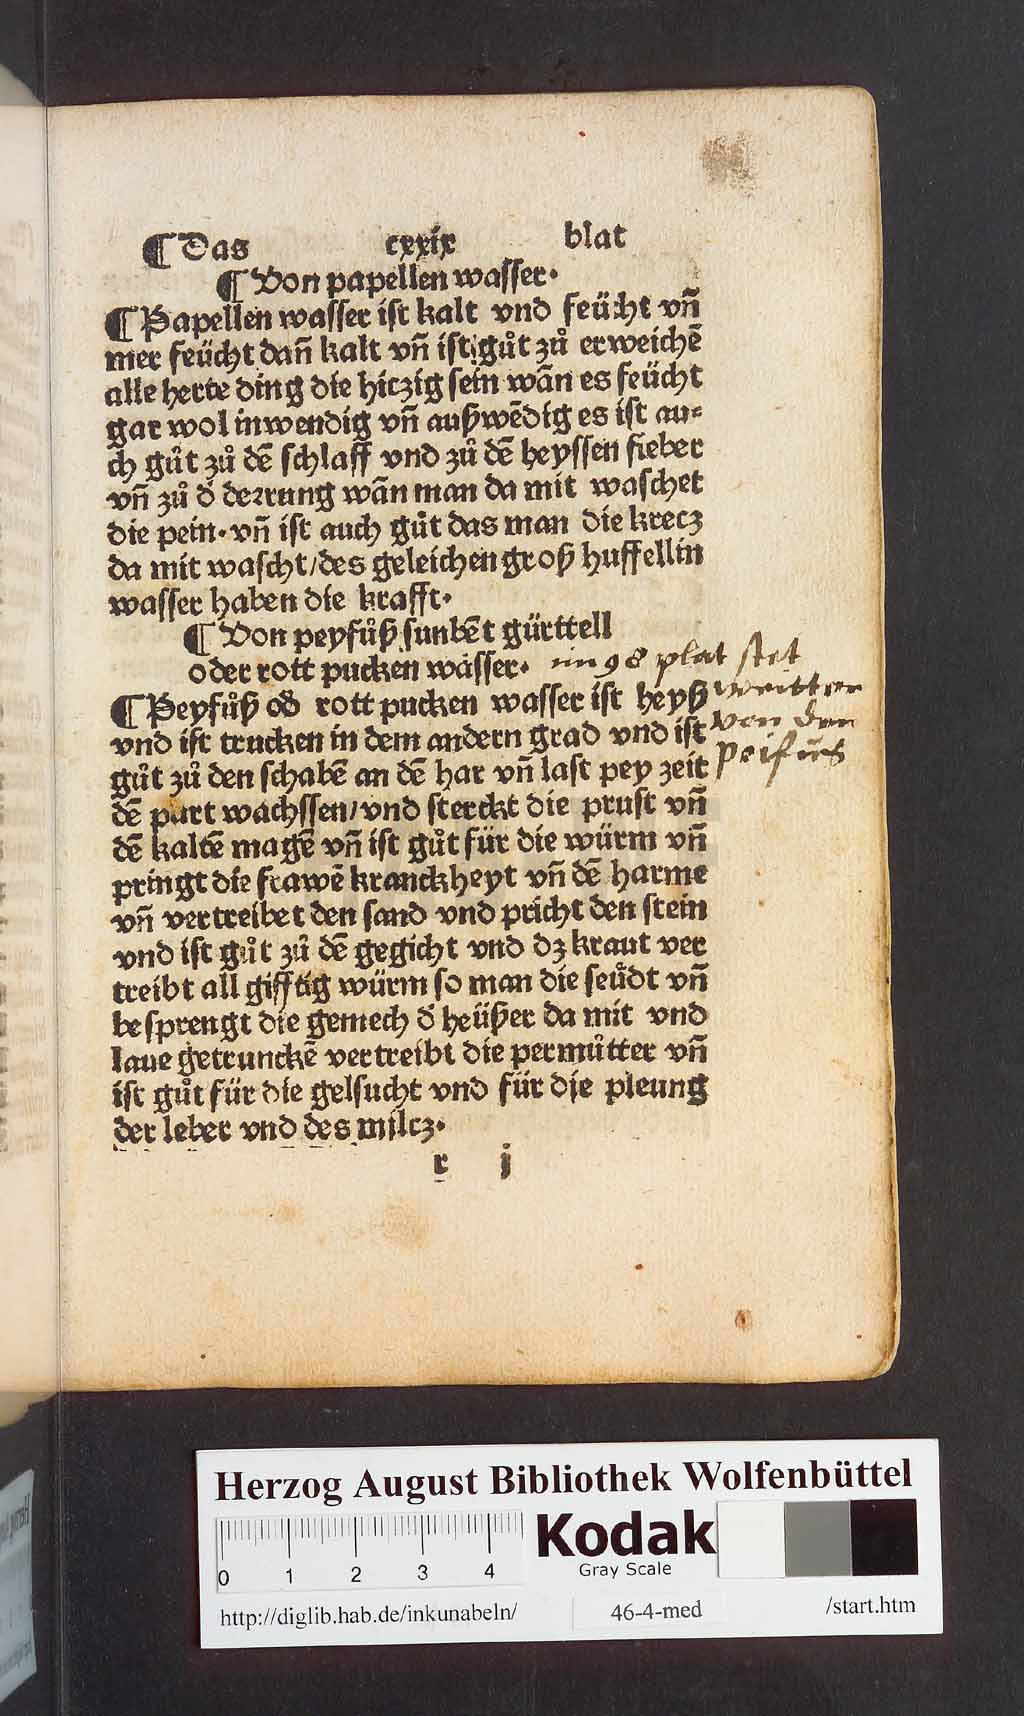 ¶ Das cxxix blat
¶ Von papellen wasser.
¶ Papellen wasser ist kalt vnd feücht vn̄
mer feücht dan̄ kalt vn̄ ist gůt zů erweichē
alle herte ding die hiczig sein wān es feücht
gar wol inwendig vn̄ außwēdig es ist au⸗
ch gůt zů dē schlaff vnd zů dē heyssen fieber
vn̄ zů d̕ derrung wān man da mit waschet
die pein. vn̄ ist auch gůt das man die krecz
da mit wascht/des geleichen groß huffellin
wasser haben die krafft.
¶ Von peyfůß sunbēt gürttell
oder rott pucken wasser.
im 98 plat stet
¶ Peyfůß od̕ rott pucken wasser ist heyß
weitter
vnd ist trucken in dem andern grad vnd ist
von den
gůt zů den schabē an dē har vn̄ last pey zeit
peifůs
dē part wachssen/vnd sterckt die prust vn̄
dē kaltē magē vn̄ ist gůt für die würm vn̄
pringt die frawē kranckheyt vn̄ dē harme
vn̄ vertreibet den sand vnd pricht den stein
vnd ist gůt zů dē gegicht vnd dz kraut ver
treibt all gifftig würm so man die seůdt vn̄
besprengt die gemech d̕ heüßer da mit vnd
laue getrunckē vertreibt die permůtter vn̄
ist gůt für die gelsucht vnd für die pleung
der leber vnd des milcz.
r j
Herzog August Bibliothek Wolfenbüttel
0 1 2 3 4
Kodak
Gray Scale
http://diglib.hab.de/inkunabeln/ 46-4-med /start.htm